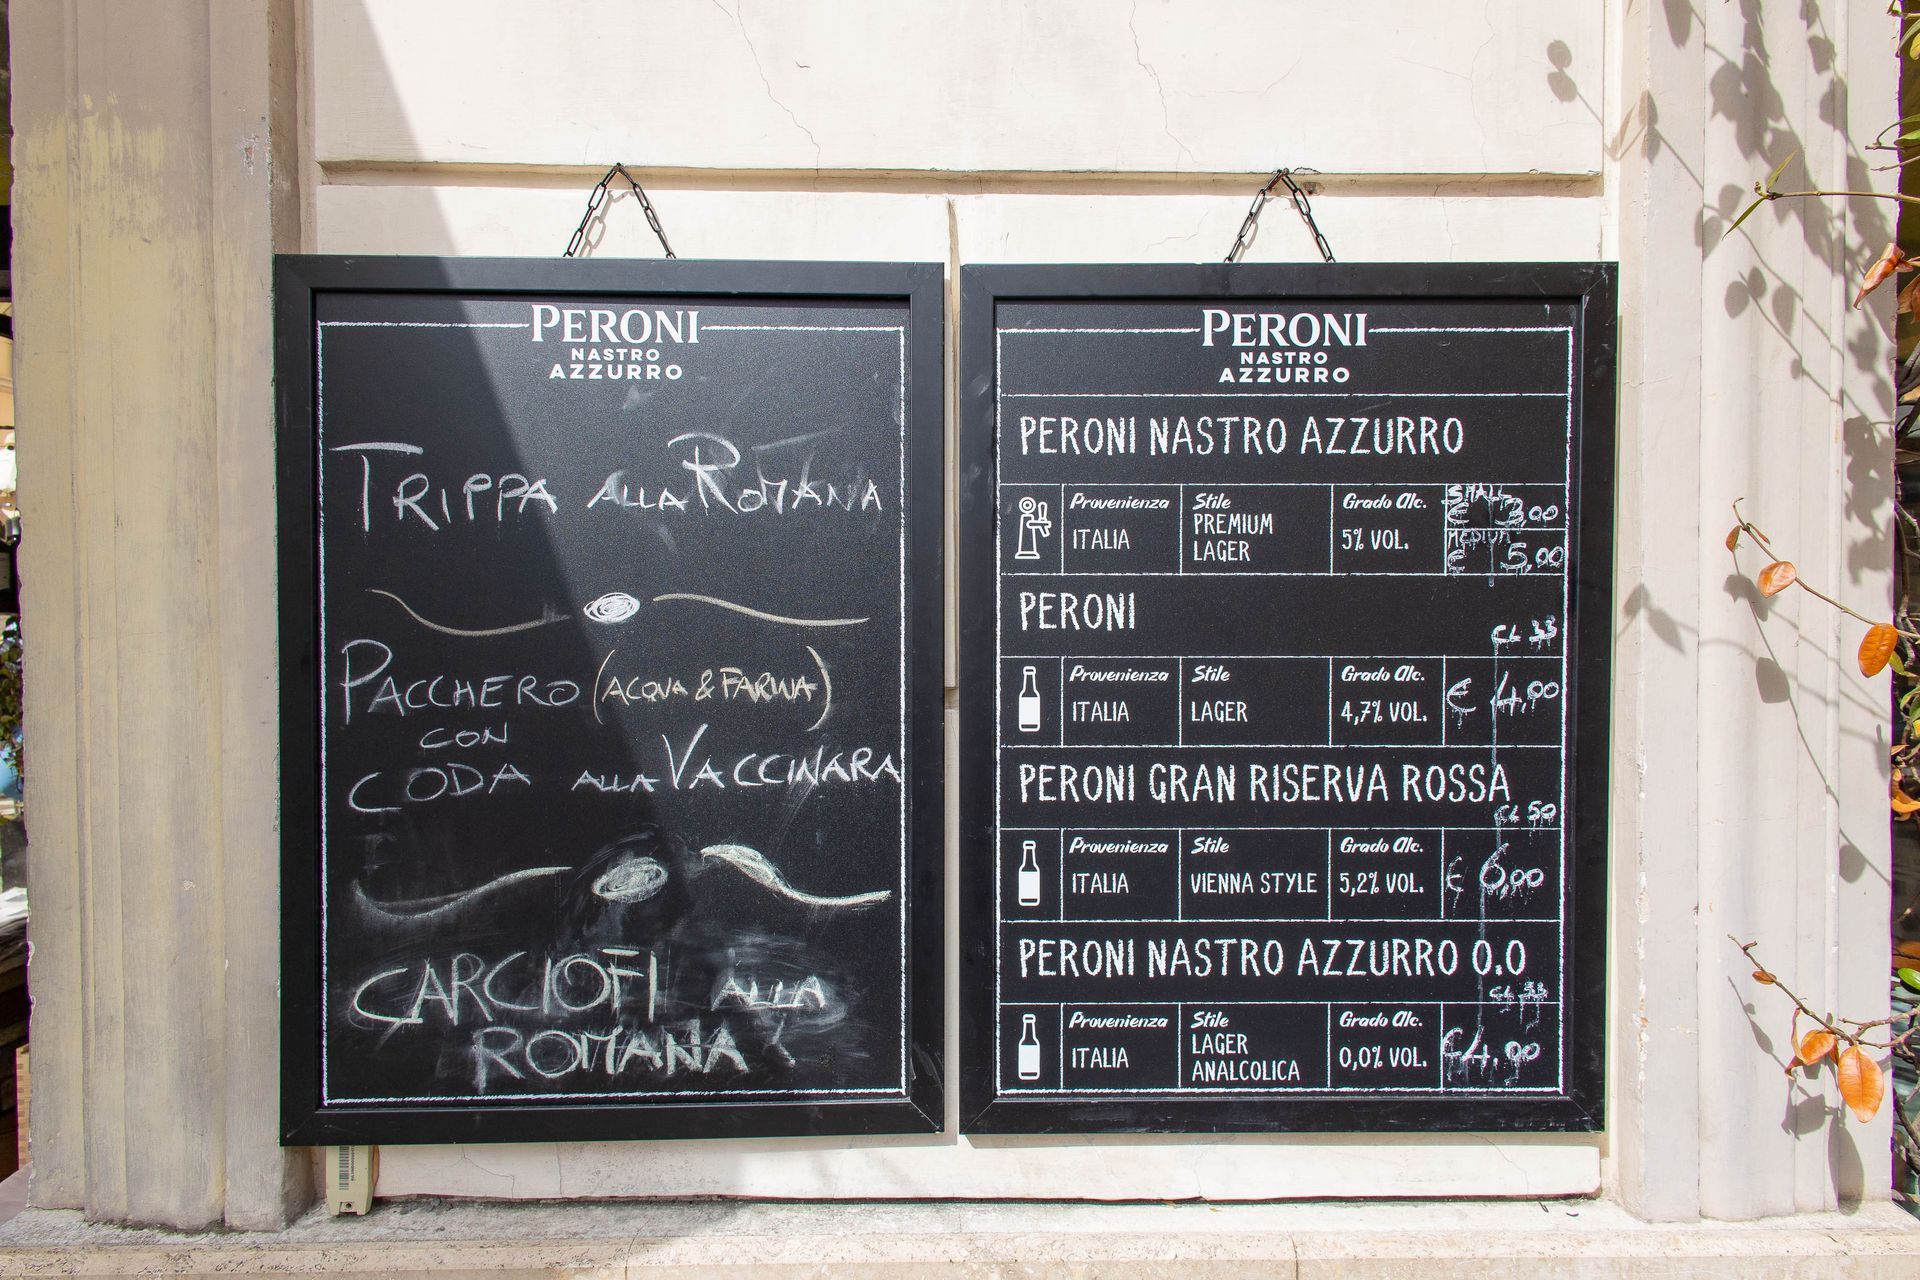 PERONI
NASTRO
AZZURRO
TRIPPA ALLA ROMANA
PACCHERO (ACQUA & FARINA)
CON
CODA ALLA VACCINARA
CARCIOFI ALLA
ROMANA
PERONI
NASTRO
AZZURRO
PERONI NASTRO AZZURRO
Provenienza
ITALIA
Stile
PREMIUM
LAGER
Grado Alc.
5% VOL.
SMALL
€ 3,00
MEDIUM
€ 5,00
PERONI
CL 33
Provenienza
ITALIA
Stile
LAGER
Grado Alc.
4,7% VOL.
€ 4,00
PERONI GRAN RISERVA ROSSA
CL 50
Provenienza
ITALIA
Stile
VIENNA STYLE
Grado Alc.
5,2% VOL.
€ 6,00
PERONI NASTRO AZZURRO 0.0
CL 33
Provenienza
ITALIA
Stile
LAGER
ANALCOLICA
Grado Alc.
0,0% VOL.
€ 4,00